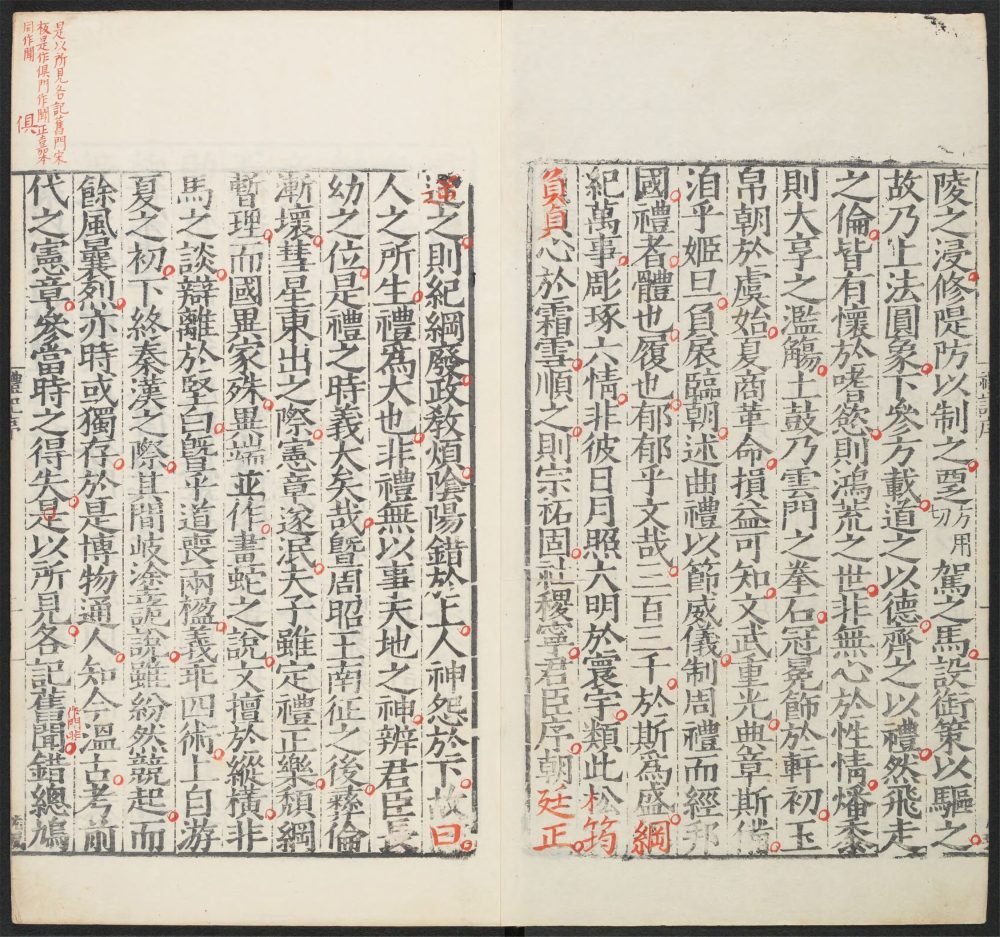 陵之浸修隄防以制之覂方用切駕之馬設銜策以驅之
故乃上法圓象下參方載道之以德齊之以禮然飛走
之倫皆有懷於嗜欲則鴻荒之世非無心於性情燔黍
則大享之濫觴土鼓乃雲門之拳石冠冕飾於軒初玉
帛朝於虞始夏商革命損益可知文武重光典章斯備
洎乎姬旦負扆臨朝述曲禮以節威儀制周禮而經邦
國禮者體也履也郁郁乎文哉三百三千於斯為盛綱
紀萬事彫琢六情非彼日月照六明於寰宇類此松筠
負貞心於霜雪順之則宗祏固社稷寧君臣序朝廷正
逆之則紀綱廢政教煩陰陽錯於上人神怨於下故曰
人之所生禮為大也非禮無以事天地之神辨君臣長
幼之位是禮之時義大矣哉暨周昭王南征之後彝倫
漸壞彗星東出之際憲章遂泯夫子雖定禮正樂頹綱
暫理而國異家殊異端並作畫蛇之說文擅於縱橫非
馬之談辯離於堅白暨乎道喪兩楹義乖四術上自游
夏之初下終秦漢之際其間歧塗詭說雖紛然競起而
餘風曩烈亦時或獨存於是博物通人知今溫古考前
代之憲章參當時之得失是以所見各記舊聞錯總鳩
作門非
是以所見各記舊門宋
板是作俱門作聞正嘉本
同作聞
俱
禮記序